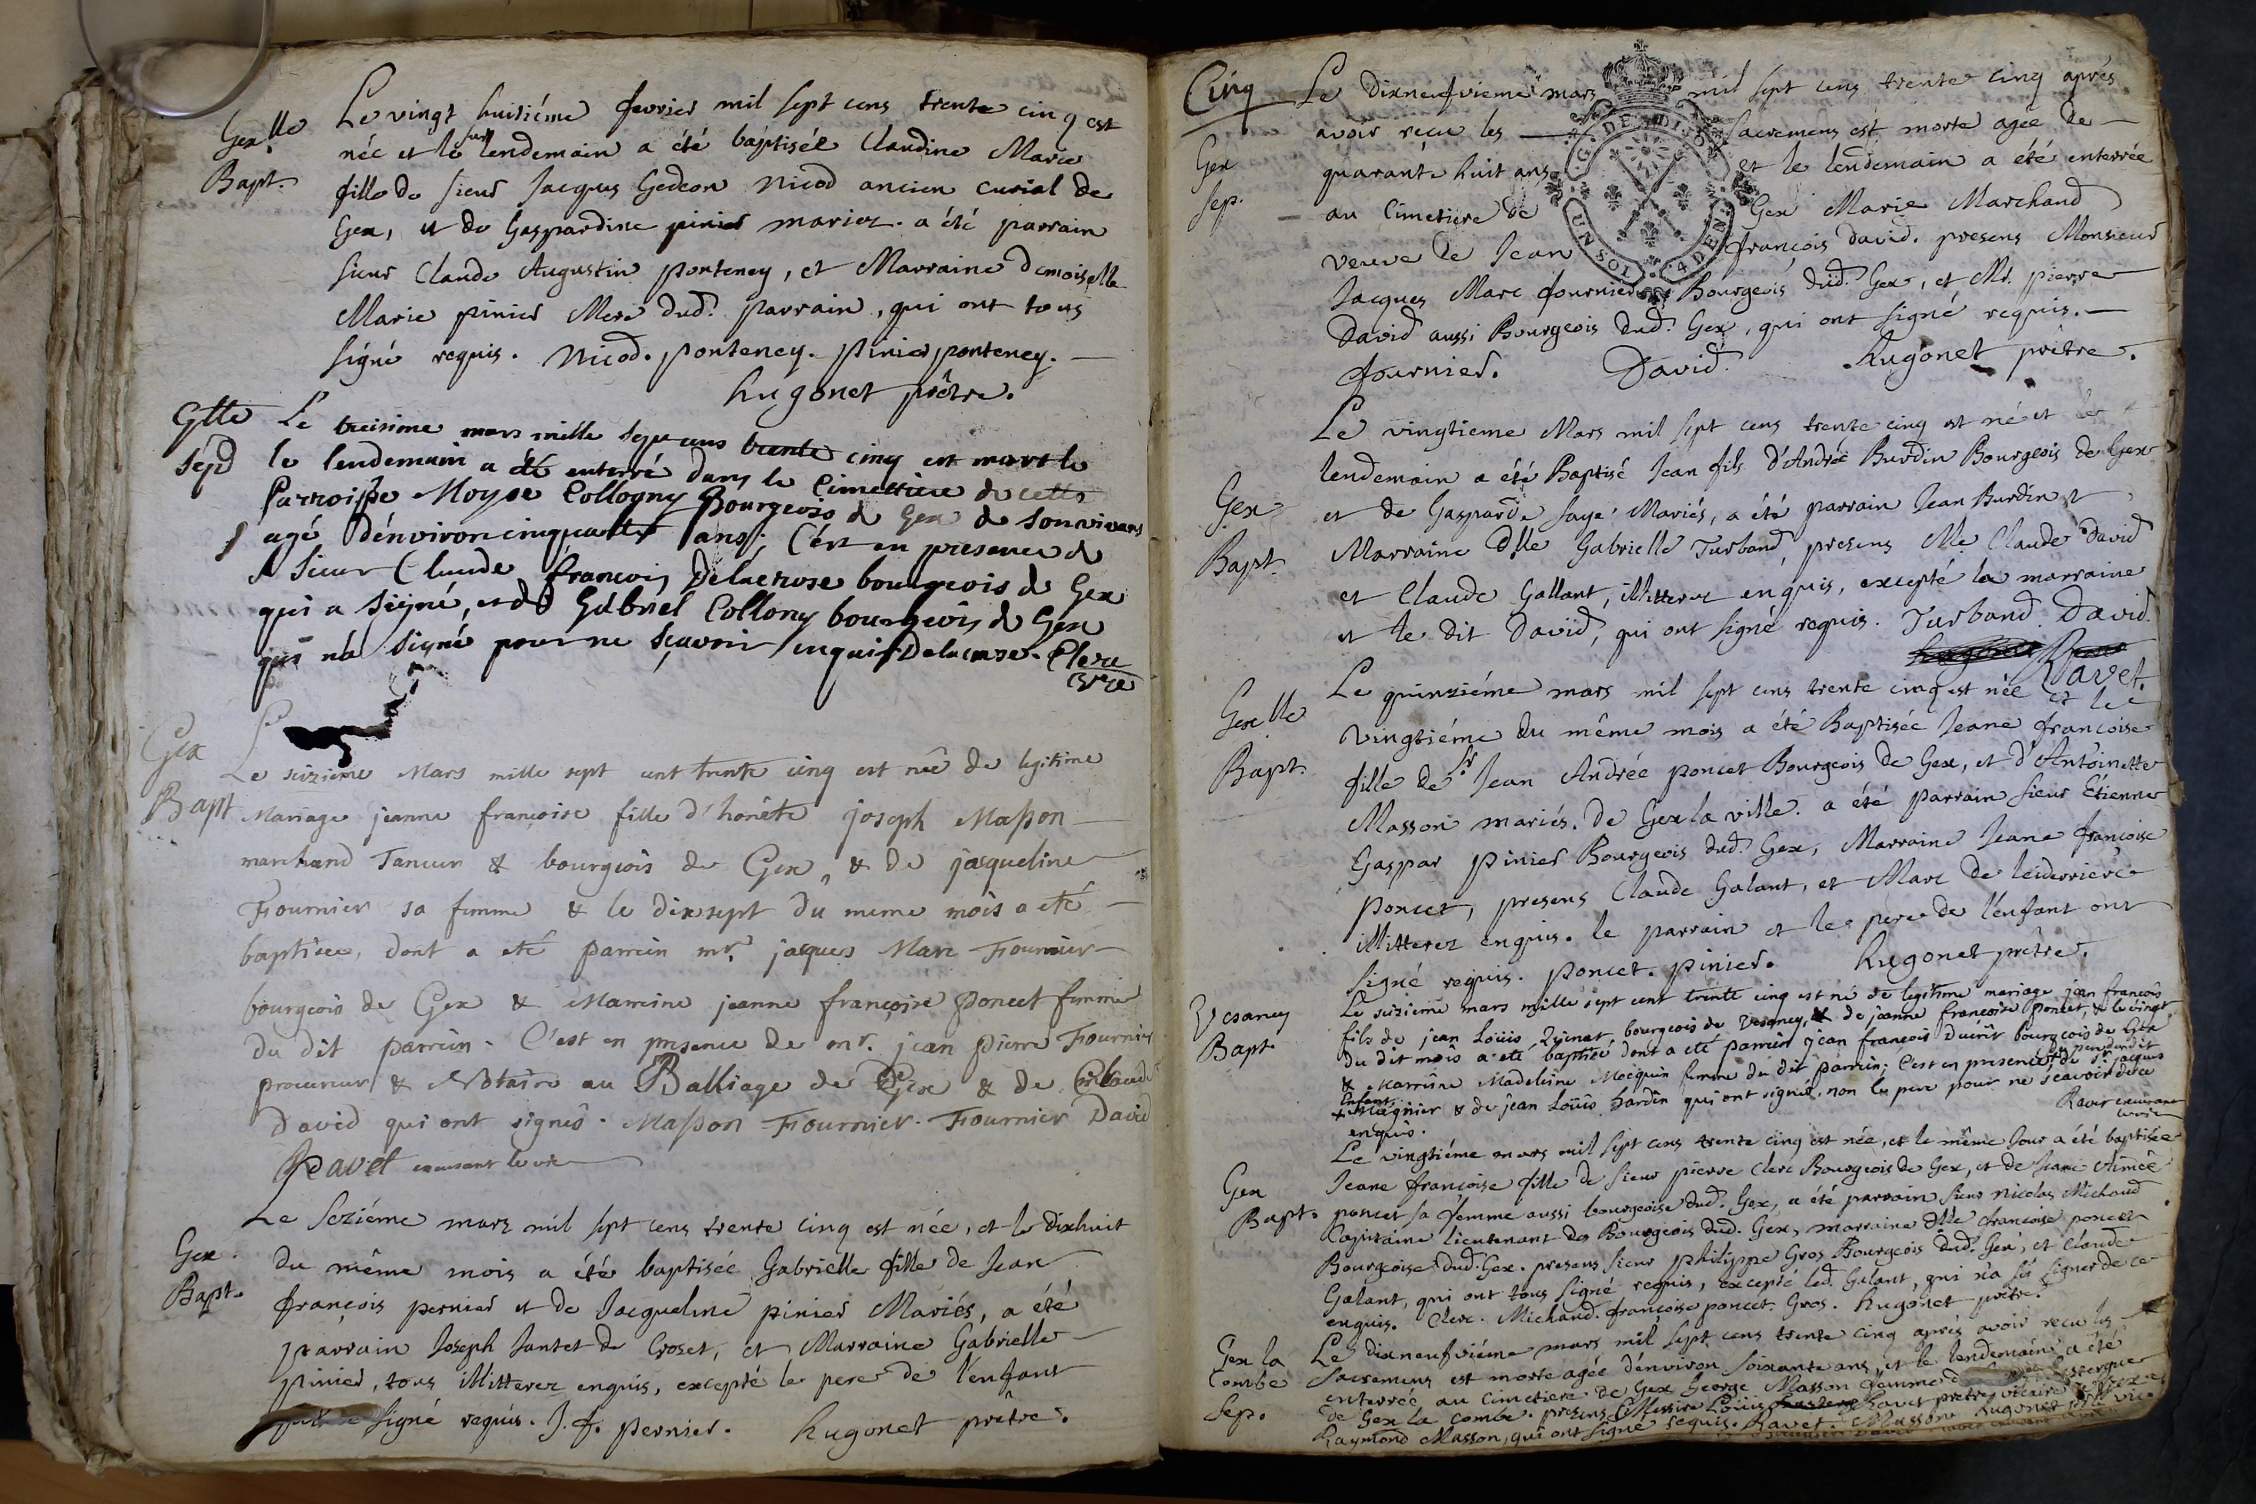 Gex lle
Bapt.
Le vingt huitiéme fevrier mil sept cens trente cinq est
née et le lendemain a été baptisée Claudine Marie
fille de sieur Jacques Gedeon Nicod ancien curial de
Gex, et de Gaspardine pinier mariez. a été parrain
sieur Claude Augustin ponteney, et Marraine demoiselle
Marie pinier Mere dud. parrain, qui ont tous
signé requis. Nicod. ponteney. pinier ponteney.
hugonet prêtre.
Sépd
Le treisime mars mille sept cens trente cinq est mort le
le lendemain a été enterré dans le Cimettiere de cette
Parroisse Moyse Collogny Bourgeois de Gex de son vivant
agé dénviron cinquante ans; C'est en presence de
Sieur Claude françois Delacrose bourgeois de Gex
qui a signé, et de Gabriel Collony bourgeois de Gex
qui n'a signé pour ne sçavoir enquis Delacrose. Clerc
Gex
Bapt
Le seizieme Mars mille sept cent trente cinq est née de legitime
Mariage jeanne françoise fille d'honête joseph Masson
marchand Taneur & bourgeois de Gex, & de jacqueline
Fournier sa femme & le dixsept du meme mois a eté
baptisée, dont a eté parrein mr. jacques Marc Fournier
bourgeois de Gex & Marreine jeanne françoise poncet femme
du dit parrein. C'est en presence de mr. jean pierre Fournier
procureur & Notaire au Balliage de Gex & de Claude
David qui ont signés. Masson Fournier. Fournier David
Ravet
Gex.
Bapt.
Le seziéme mars mil sept cens trente cinq est née, et le dixhuit
du même mois a été baptisée Gabrielle fille de Jean
françois pernier et de Jacqueline pinier Mariés, a été
parrain Joseph Jantet de Croset, et Marraine Gabrielle
pinier, tous illitterez enquis, excepté le pere de l'enfant
signé requis. J. f. pernier. hugonet prêtre.
Cinq
Gex
Sep.
Le dixneufvieme mars mil sept cens trente cinq après
avoir reçu les sacremens est morte agée de
quarante huit ans et le lendemain a été enterrée
au Cimetiere de Gex Marie Marchand
veuve de Jean françois David. presens Monsieur
Jacques Marc fournier Bourgeois dud. Gex, et Mr. pierre
David aussi Bourgeois dud. Gex, qui ont signé requis.
fournier. David. hugonet prêtre.
G. DE DIJON
UN SOL 4 DEN.
Gex
Bapt.
Le vingtieme Mars mil sept cens trente cinq est né et le
lendemain a été Baptisé Jean fils d'André Burdin Bourgeois de Gex
et de Gasparde Mariés, a été parrain Jean Burdin et
Marraine dlle Gabrielle Turband, presens Me. Claude David
et Claude Gallant, illitterez enquis, excepté la marraine
et le dit David, qui ont signé requis. Turband. David.
Ravet.
Gex lle
Bapt.
Le quinziéme mars mil sept cens trente cinq est née et le
vingtiéme du même mois a été Baptisée Jeane françoise
fille de Sr. Jean Andrée poncet Bourgeois de Gex, et d'Antoinette
Masson mariés. de Gex la ville. a été parrain sieur Etienne
Gaspar pinier Bourgeois dud. Gex, Marraine Jeane françoise
poncet, presens Claude Galant, et Marc
illitterez enquis. le parrain et le pere de l'enfant ont
signé requis. poncet. pinier. hugonet prêtre.
Vesancy
Bapt.
Le seizieme mars mille sept cent trente cinq est né de legitime mariage jean françois
fils de jean Loüis bourgeois de Vesancy, & de jeanne françoise poncet, & le vingt
du dit mois a eté baptisé dont a eté parrein jean françois bourgeois de Gex
& Marreine Madeleine Mocquin femme du dit parrein; C'est en presence du pere du dit
Enfant, de Sr. jacques & de jean Loüis qui ont signés, non le pere pour ne sçavoir de ce
enquis.
Ravet
Gex
Bapt.
Le vingtiéme mars mil sept cens trente cinq est née, et le même Jour a été baptisée
Jeane françoise fille de sieur pierre Clerc Bourgeois de Gex, et de Jeane Aimée
poncet sa femme aussi bourgeoise dud. Gex, a été parrain sieur Nicolas Michaud
Capitaine lieutenant des Bourgeois dud. Gex, marraine dlle françoise poncet
Bourgeoise dud. Gex. presens sieur philippe Gros Bourgeois dud. Gex, et Claude
Galant, qui ont tous signé requis, excepté led. Galant, qui n'a sû signer de ce
enquis. Clerc. Michaud. françoise poncet. Gros. hugonet prêtre.
Gex la
Combe
Sep.
Le dixneufviéme mars mil sept cens trente cinq après avoir reçu les
Sacremens est morte agée dénviron soixante ans, et le lendemain a été
enterrée au cimetiere de Gex George Masson femme
de Gex la combe. presens Messire Loüis Ravet prêtre vicaire
Raymond Masson, qui ont signé requis. Ravet. Masson. hugonet